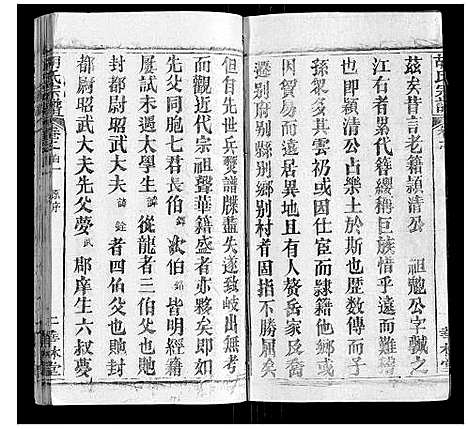 胡氏宗譜
茲矣昔言老籍穎清公　祖勉公字誠之
江右者累代簪纓稱巨族惜乎遠而難稽
也所以穎清公占樂土於斯也歷數傳而子
孫衆多其雲礽或因仕宦而隸籍他鄉或
因貿易而遠居異地且有人贅岳家長裔
遷別府別縣別鄉別村者固指不勝屢矣
但自先世兵燹譜牒盡失遂致岐出無考
而觀近代宗祖聲華籍盛者亦夥矣即如
先父同胞七君長伯　皆明經
屢試未遇太學生　從龍者三伯父也貤
封都尉昭武大夫　銓者四伯父也貤封
都尉昭武大夫先父夢　郡庠生六叔夢
胡氏宗譜　卷之